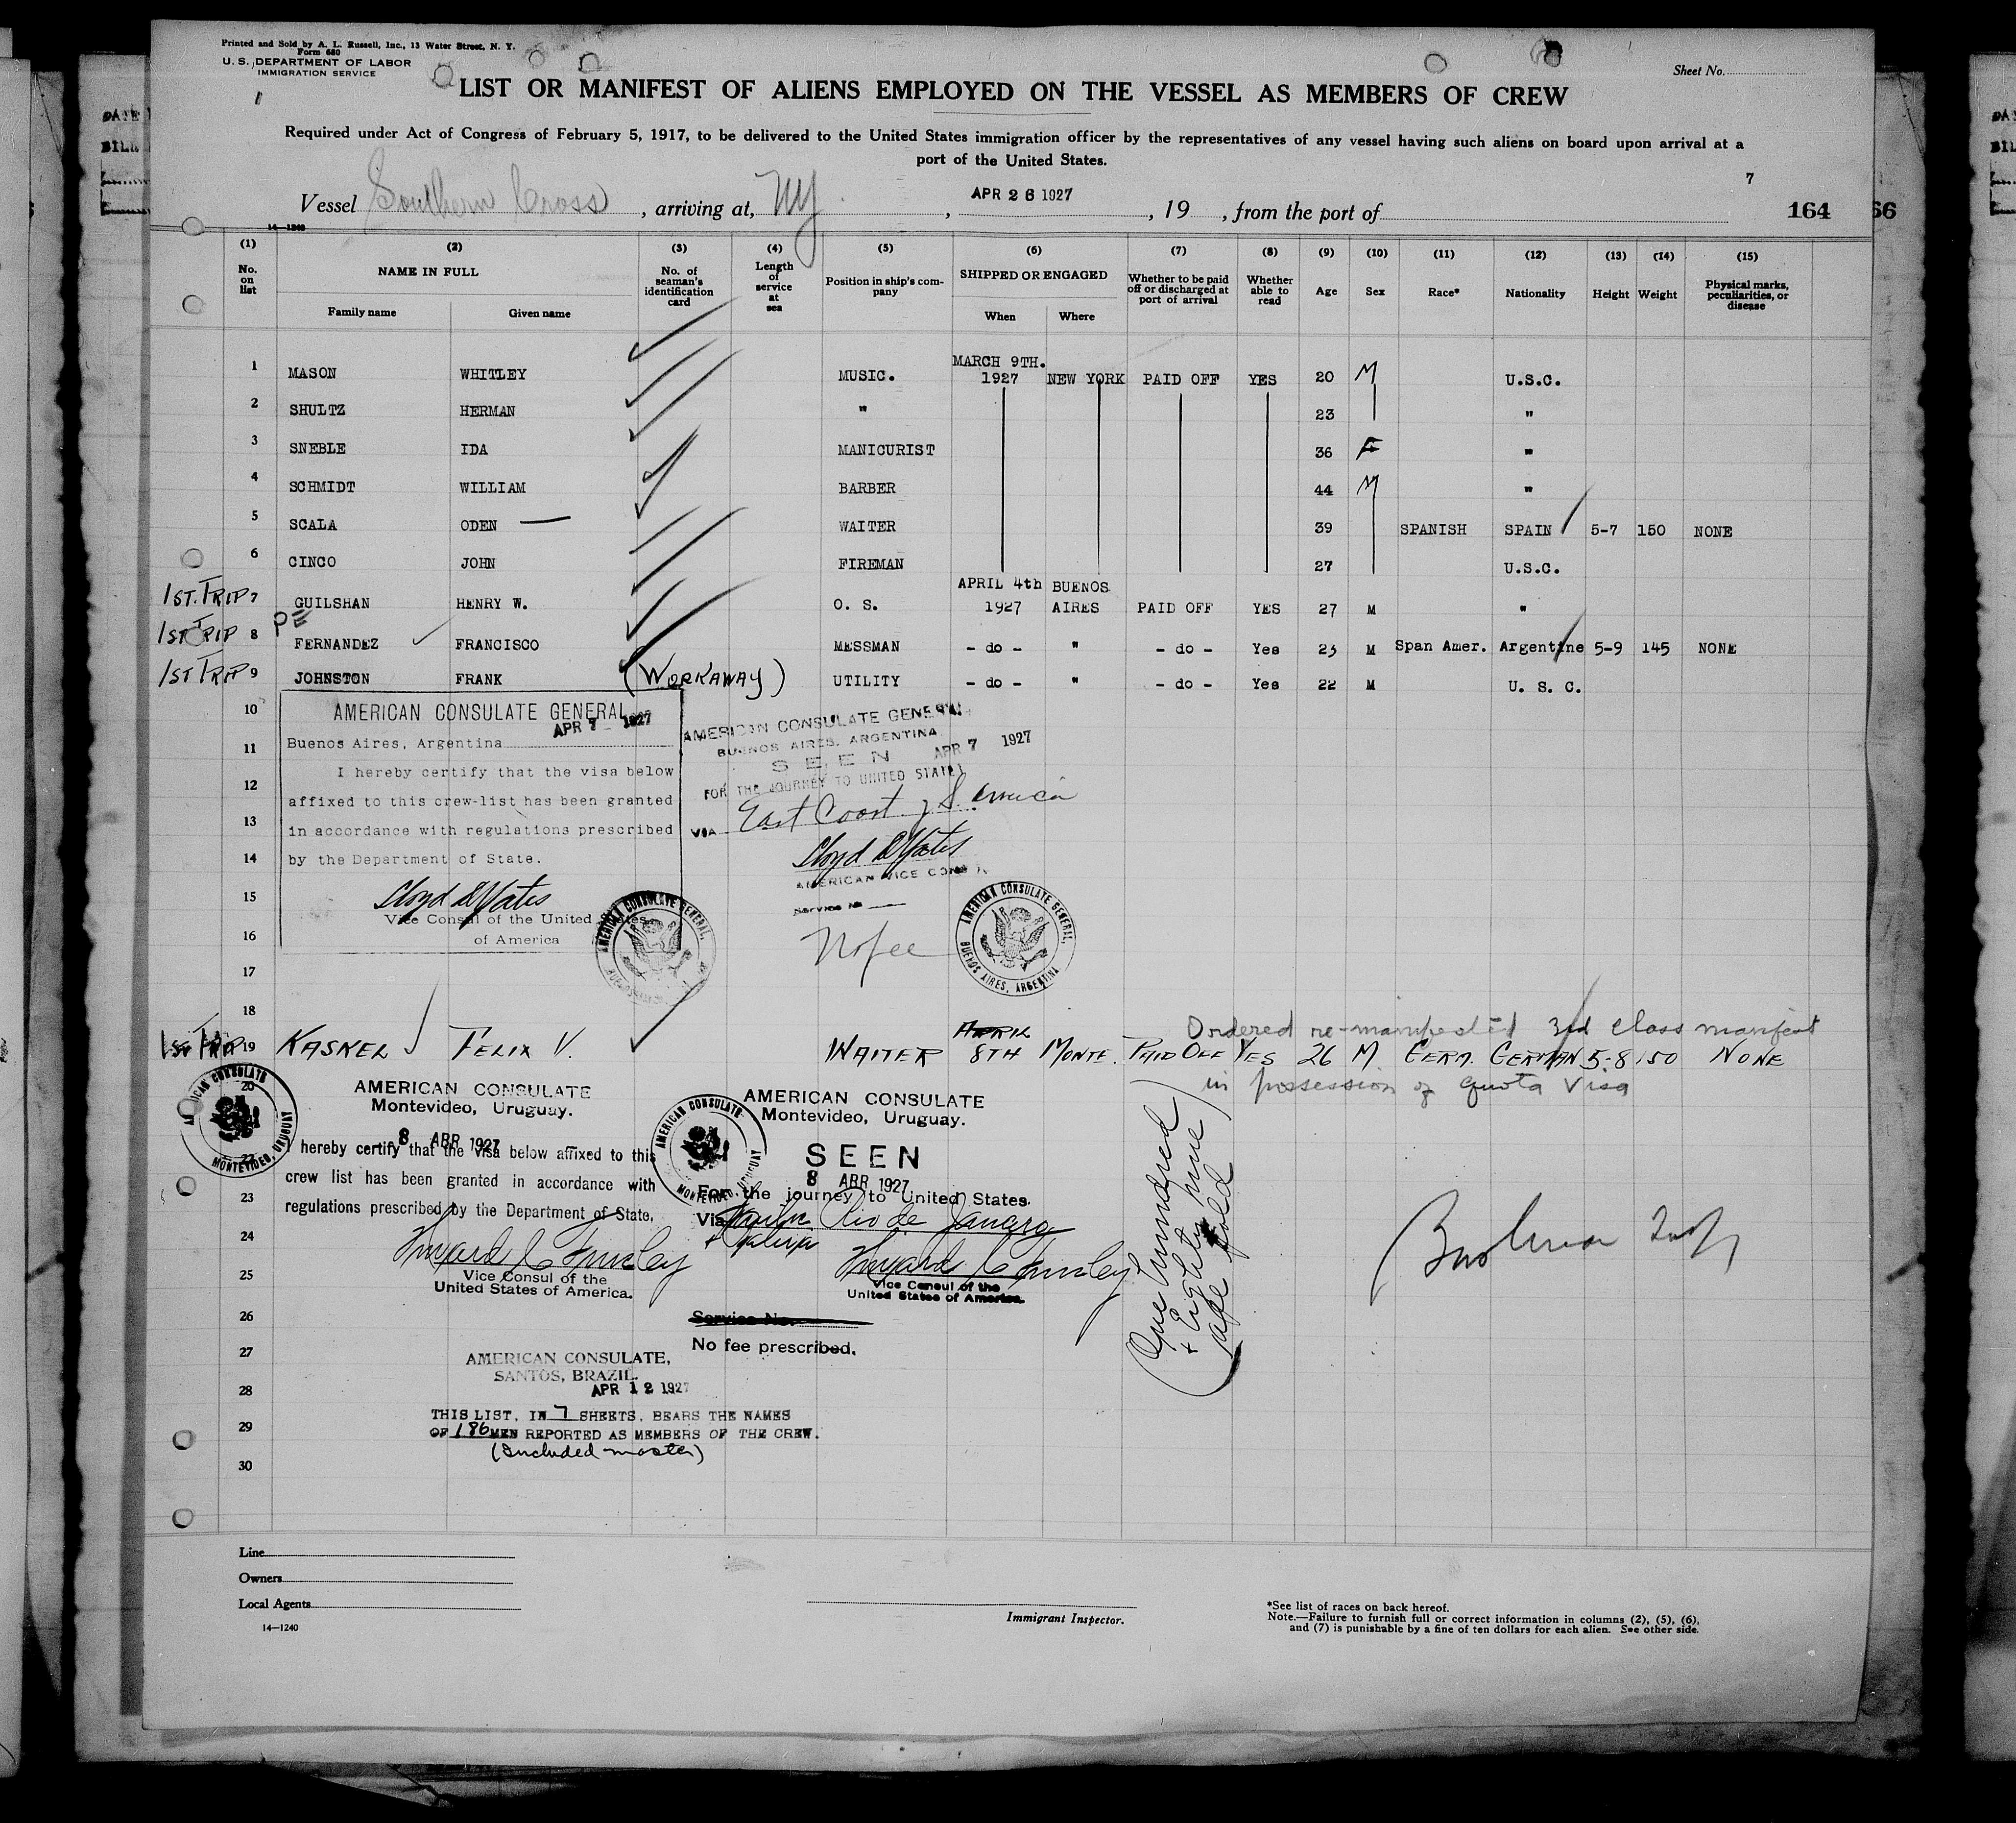 Printed and Sold by A. L. Russell, Inc., 13 Water Street, N. Y.
Form 680
U. S. DEPARTMENT OF LABOR
IMMIGRATION SERVICE
Sheet No.
LIST OR MANIFEST OF ALIENS EMPLOYED ON THE VESSEL AS MEMBERS OF CREW
Required under Act of Congress of February 5, 1917, to be delivered to the United States immigration officer by the representatives of any vessel having such aliens on board upon arrival at a
port of the United States.
7
Vessel Southern Cross, arriving at, NY, APR 26 1927, 19 , from the port of 164 66
14—1240
(1) (2) (3) (4) (5) (6) (7) (8) (9) (10) (11) (12) (13) (14) (15)
No. on list
NAME IN FULL
Family name Given name
No. of seaman's identification card
Length of service at sea
Position in ship's company
SHIPPED OR ENGAGED
When Where
Whether to be paid off or discharged at port of arrival
Whether able to read
Age Sex Race* Nationality Height Weight
Physical marks, peculiarities, or disease
1 MASON WHITLEY MUSIC. MARCH 9TH. 1927 NEW YORK PAID OFF YES 20 M U.S.C.
2 SHULTZ HERMAN " 23 "
3 SNEBLE IDA MANICURIST 36 F "
4 SCHMIDT WILLIAM BARBER 44 M "
5 SCALA ODEN — WAITER 39 SPANISH SPAIN 5-7 150 NONE
6 CINCO JOHN FIREMAN 27 U.S.C.
1ST. TRIP 7 GUILSHAN HENRY W. O. S. APRIL 4th 1927 BUENOS AIRES PAID OFF YES 27 M "
1ST TRIP 8 FERNANDEZ FRANCISCO MESSMAN - do - " - do - Yes 23 M Span Amer. Argentine 5-9 145 NONE
1ST TRIP 9 JOHNSTON FRANK (WORKAWAY) UTILITY - do - " - do - Yes 22 M U. S. C.
10
11
12
13
14
15
16
17
18
AMERICAN CONSULATE GENERAL
APR 7 1927
Buenos Aires, Argentina
I hereby certify that the visa below
affixed to this crew-list has been granted
in accordance with regulations prescribed
by the Department of State.
Lloyd D Yates
Vice Consul of the United States
of America
AMERICAN CONSULATE GENERAL,
BUENOS AIRES, ARGENTINA
AMERICAN CONSULATE GENERAL
BUENOS AIRES, ARGENTINA
SEEN APR 7 1927
FOR THE JOURNEY TO UNITED STATES
VIA East Coast of S. America
Lloyd D Yates
AMERICAN VICE CONSUL
Service No
No fee
AMERICAN CONSULATE GENERAL,
BUENOS AIRES, ARGENTINA
Ordered re-manifested 3rd class manifest
1ST TRIP 19 KASKEL FELIX V. WAITER APRIL 8TH MONTE. PAID OFF YES 26 M GERM. GERMAN 5-8 150 NONE
in possession of quota visa
20
22
AMERICAN CONSULATE
MONTEVIDEO, URUGUAY
AMERICAN CONSULATE
Montevideo, Uruguay.
8 ABR 1927
I hereby certify that the visa below affixed to this
crew list has been granted in accordance with
regulations prescribed by the Department of State.
Vice Consul of the
United States of America.
AMERICAN CONSULATE
MONTEVIDEO, URUGUAY
AMERICAN CONSULATE
Montevideo, Uruguay.
SEEN
8 ABR 1927
For the journey to United States.
Via Santos Rio de Janeiro
Vice Consul of the
United States of America.
Service No.
No fee prescribed.
One hundred
+ Eighty nine
23
24
25
26
27
28
29
30
AMERICAN CONSULATE,
SANTOS, BRAZIL.
APR 12 1927
THIS LIST, IN 7 SHEETS, BEARS THE NAMES
OF 186 MEN REPORTED AS MEMBERS OF THE CREW.
(Included master)
Line
Owners
Local Agents
14—1240
Immigrant Inspector.
*See list of races on back hereof.
Note.—Failure to furnish full or correct information in columns (2), (5), (6),
and (7) is punishable by a fine of ten dollars for each alien. See other side.